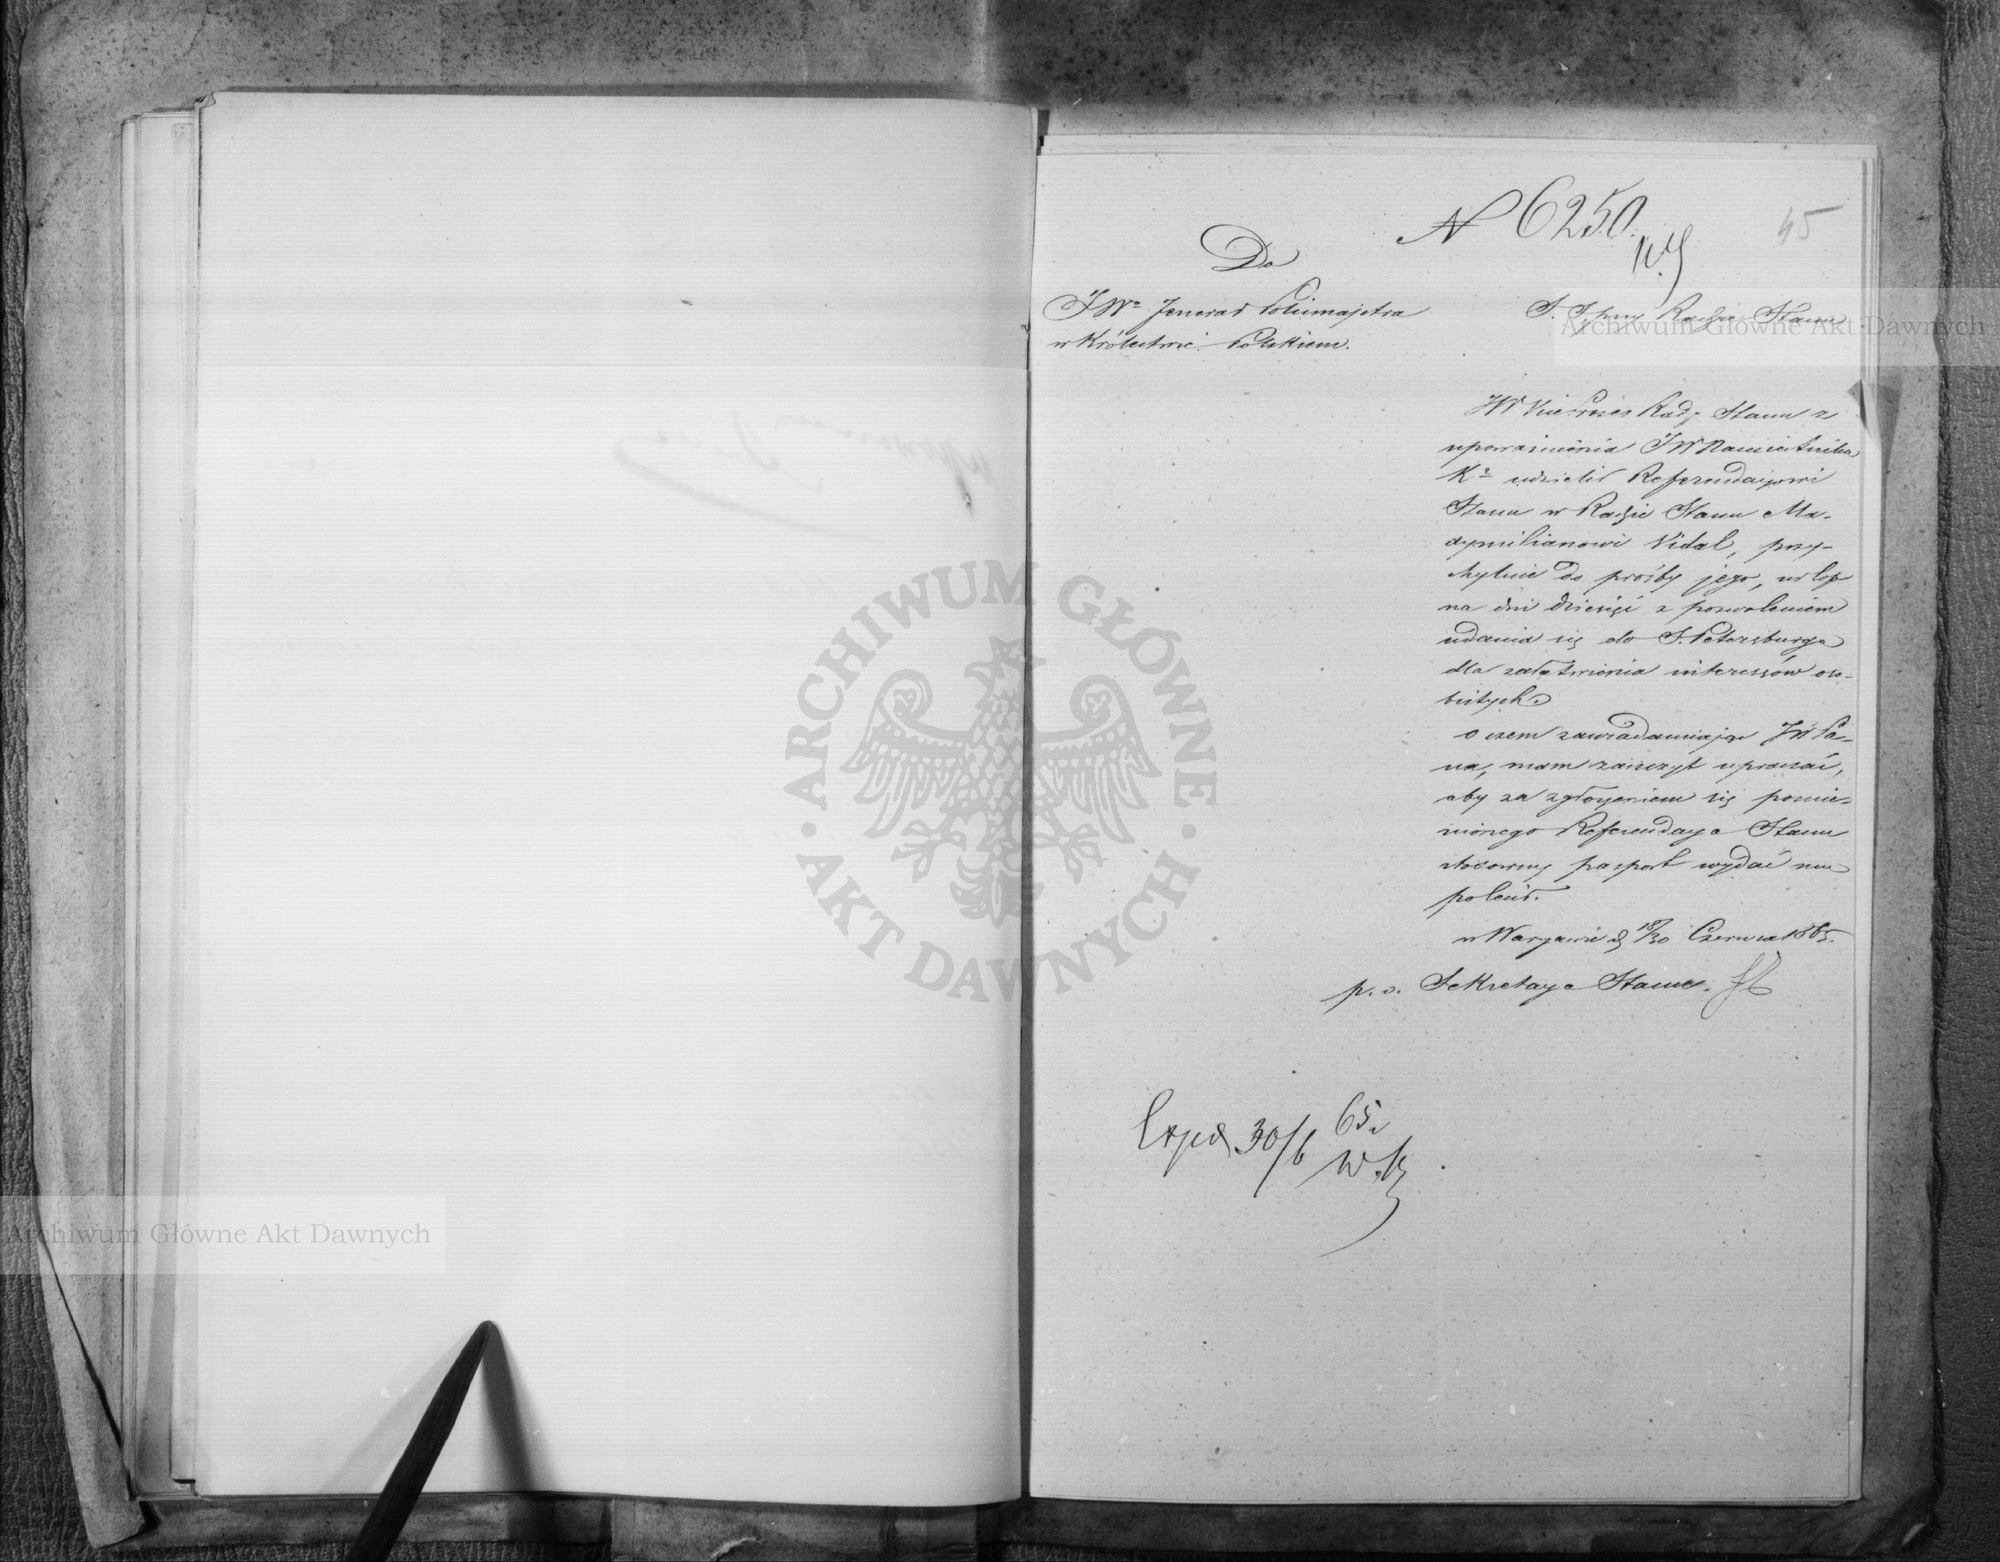 N 6250.
45
Do
JWo Jenerał Policmajstra
w Królestwie Polskiem.
S. S. przy Radzie Stanu
JW Vice Prezes Rady Stanu z
upoważnienia JW Namiestnika
Kr. udzielił Referendarzowi
Stanu w Radzie Stanu Ma-
xymilianowi Vidal, przy-
chylnie do prośby jego, urlop
na dni dziesięć z pozwoleniem
udania się do S. Petersburga
dla załatwienia interessów oso-
bistych.
O czem zawiadamiając JW Pa-
na, mam zaszczyt upraszać,
aby za zgłoszeniem się pomie-
nionego Referendarza Stanu
stosowny paszport wydać mu
polecił.
w Warszawie d. 18/30 Czerwca 1865.
p. o. Sekretarza Stanu.
Exped 30/6 65.
Archiwum Główne Akt Dawnych
ARCHIWUM GŁÓWNE
AKT DAWNYCH
Archiwum Główne Akt Dawnych